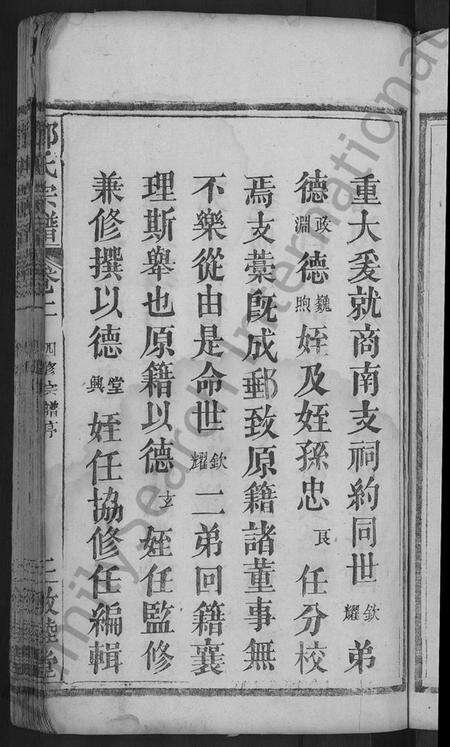 重大爰就商南支祠約同世欽耀弟
德政淵德巍煦姪及姪孫忠良任分校
焉支藁旣成郵致原籍諸董事無
不樂從由是命世欽耀二弟回籍襄
理斯舉也原籍以德玄姪任監修
兼修撰以德堂興姪任協修任編輯
氏宗譜 卷二 四修宗譜序 敦睦堂
FamilySearch International